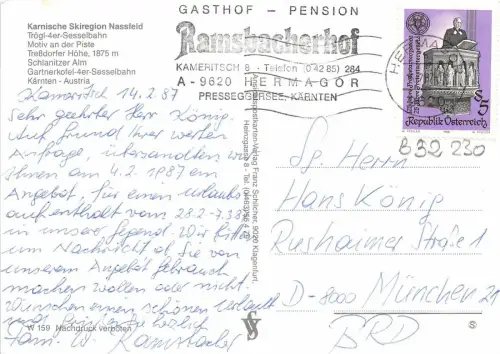 Karnische Skiregion Nassfeld
Trögl-4er-Sesselbahn
Motiv an der Piste
Treßdorfer Höhe, 1875 m
Schlanitzer Alm
Gartnerkofel-4er-Sesselbahn
Kärnten - Austria
GASTHOF - PENSION
Ramsbacherhof
KAMERITSCH 8 - Telefon (0 42 85) 284
A-9620 HERMAGOR
PRESSEGGERSEE, KÄRNTEN
HERMA
Republik Österreich
S 5
B32 230
Kameritsch 14.2.87
Sehr geehrter Herr König.
Auf Grund Ihrer werten
Anfrage übersandten wir
Ihnen am 4.2.1987 ein
Angebot, für einen Urlaubs
aufenthalt vom 28.2-7.3.87
in unser Gegend. Wir bitten
um Nachricht ob Sie von
unserem Angebot gebrauch
machen wollen oder nicht.
Wünschen einen schönen Urlaub
und
Fam. W. Ramsbacher
W 159 Nachdruck verboten
Ansichtskarten-Verlag Franz Schilcher, 9020 Klagenfurt,
Heinzgasse 8 - Tel.
Sg. Herrn
Hans König
Rushaimer Straße 1
D-8000 München 21
BRD